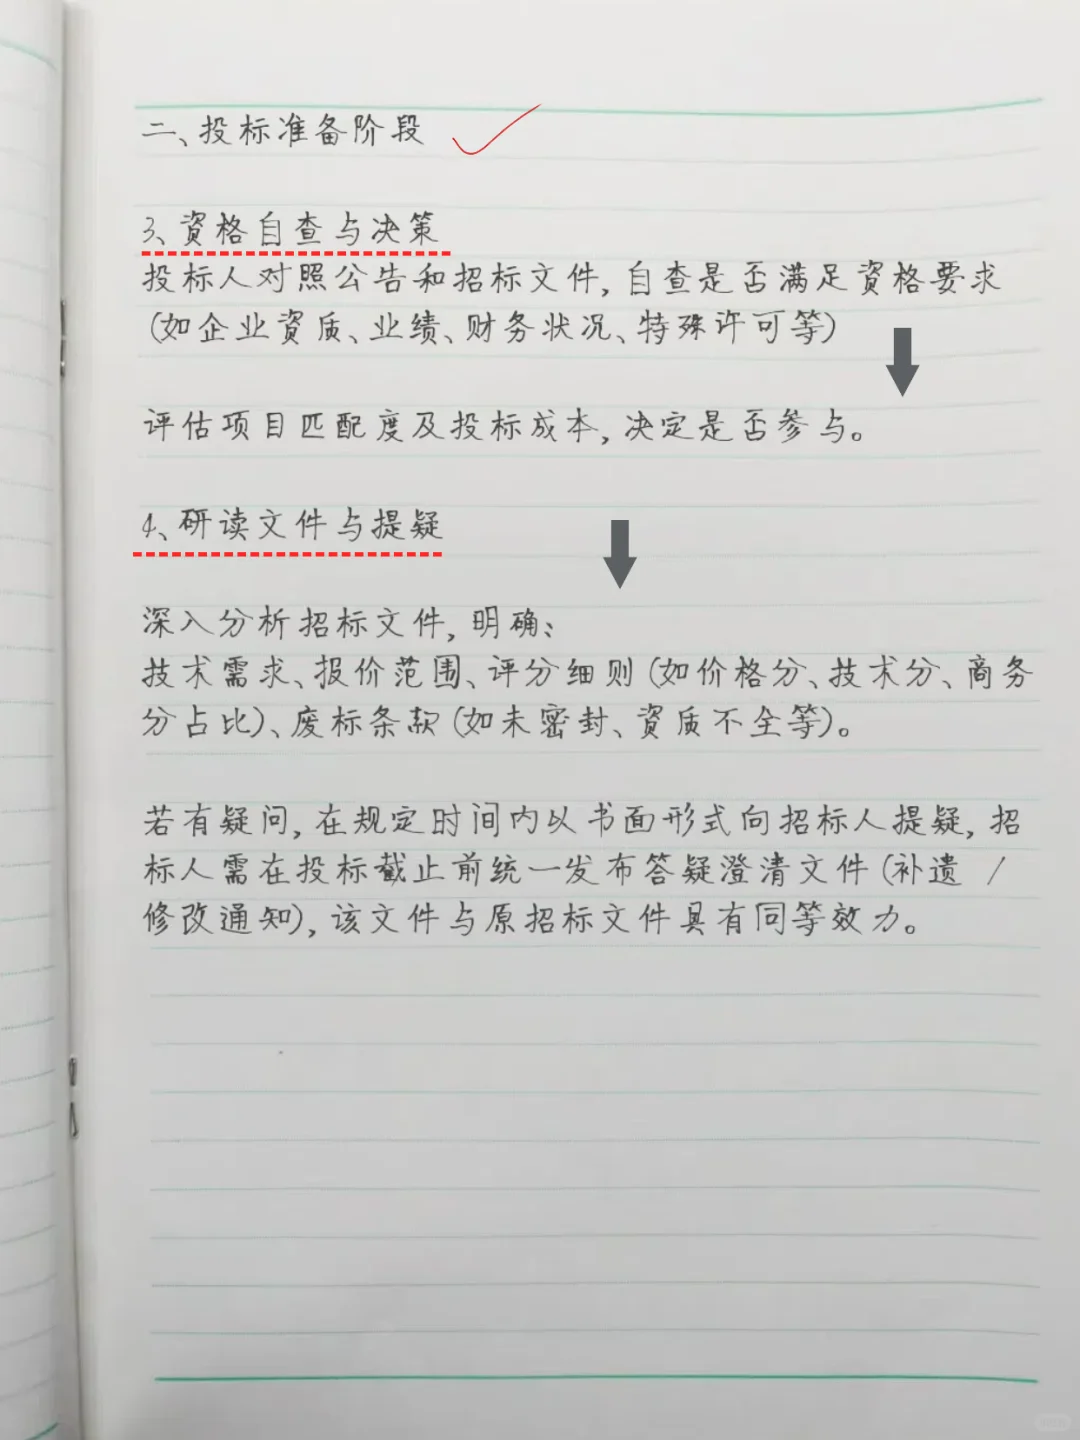 二、投标准备阶段
3、資格自查与决策
投标人对照公告和招标文件,自查是否满足資格要求
(如企业資质、业绩、财务状况、特殊许可等)
评估项目匹配度及投标成本,决定是否参与。
4、研读文件与提疑
深入分析招标文件,明确:
技术需求、报价范围、评分细则(如价格分、技术分、商务
分占比)、废标条款(如未密封、資质不全等)。
若有疑问,在规定时间内以书面形式向招标人提疑,招
标人需在投标截止前统一发布答疑澄清文件(补遗 /
修改通知),该文件与原招标文件具有同等效力。